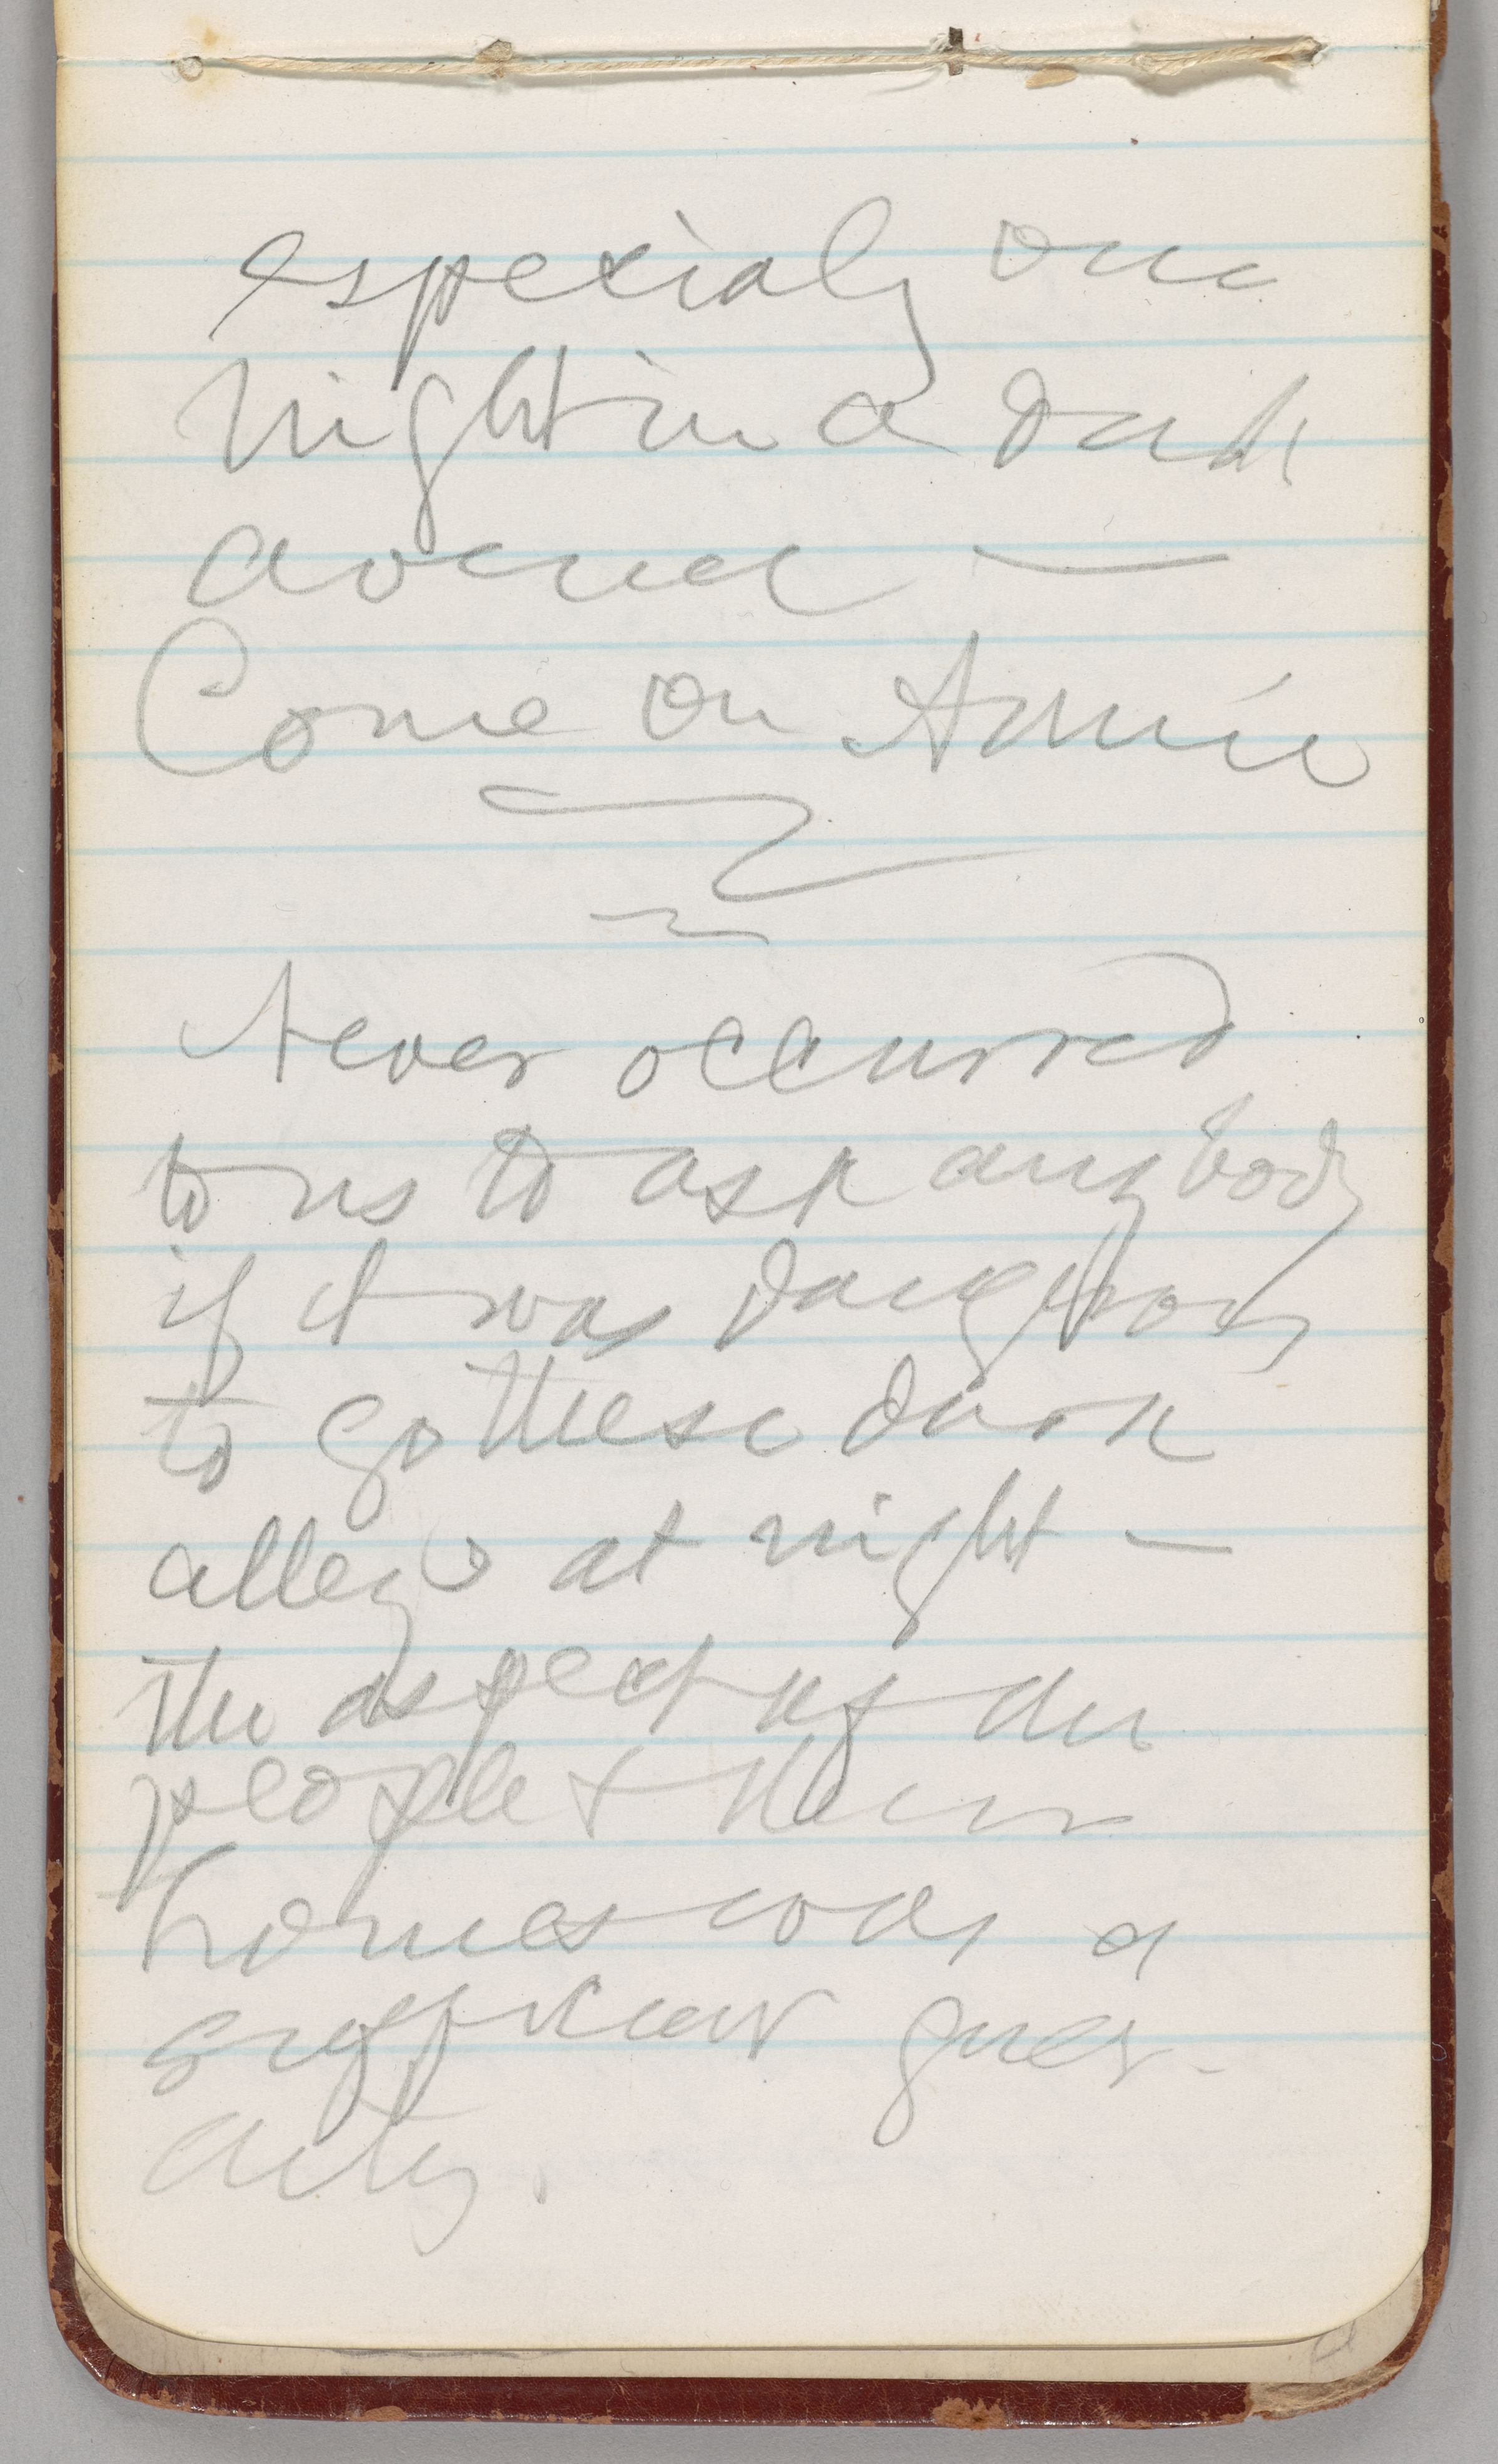 especialy one
night in a dark
avenue —
Come on Annie
Never occurred
to us to ask anybody
if it was dangerous
to go these dark
alleys at night —
the aspect of the
people & their
homes was a
sufficient guar-
anty.